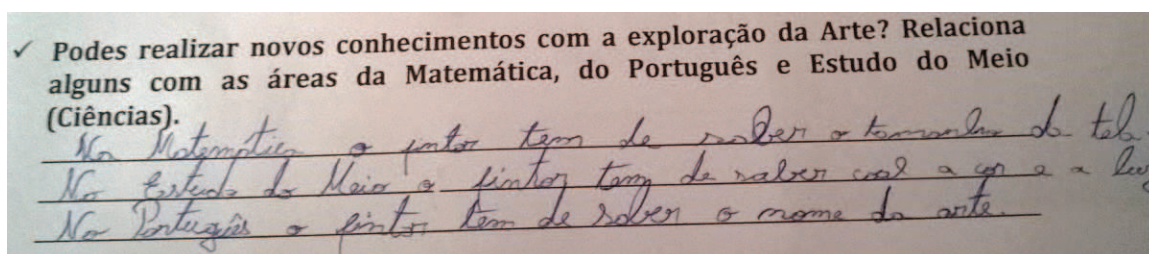 ✓ Podes realizar novos conhecimentos com a exploração da Arte? Relaciona
alguns com as áreas da Matemática, do Português e Estudo do Meio
(Ciências).
Na Matemptica o pintor tem de saber o tamanho da tela
No Estudo do Meio o pintor tem de saber coal a cor e a luz
No Português o pintor tem de saber o nome da arte.